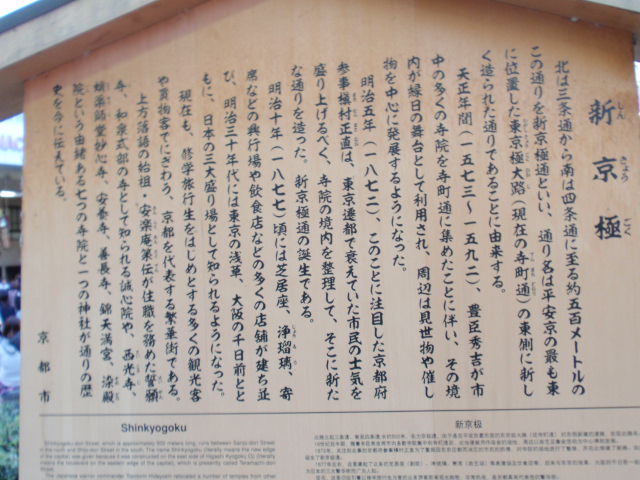 新京極
しんきょうごく
北は三条通から南は四条通に至る約五百メートルの
この通りを新京極通といい、通り名は平安京の最も東
に位置した東京極大路(現在の寺町通)の東側に新し
く造られた通りであることに由来する。
天正年間(一五七三〜一五九二)、豊臣秀吉が市
中の多くの寺院を寺町通に集めたことに伴い、その境
内が縁日の舞台として利用され、周辺は見世物や催し
物を中心に発展するようになった。
明治五年(一八七二)、このことに注目した京都府
参事槇村正直は、東京遷都で衰えていた市民の士気を
盛り上げるべく、寺院の境内を整理して、そこに新た
な通りを造った。新京極通の誕生である。
明治十年(一八七七)頃には芝居座、浄瑠璃、寄
席などの興行場や飲食店などの多くの店舗が建ち並
び、明治三十年代には東京の浅草、大阪の千日前とと
もに、日本の三大盛り場として知られるようになった。
現在も、修学旅行生をはじめとする多くの観光客
や買物客でにぎわう、京都を代表する繁華街である。
上方落語の始祖・安楽庵策伝が住職を務めた誓願
寺、和泉式部の寺として知られる誠心院や、西光寺、
蛸薬師堂妙心寺、安養寺、善長寺、錦天満宮、染殿
院という由緒ある七つの寺院と一つの神社が通りの歴
史を今に伝えている。
京都市
Shinkyogoku
Shinkyogoku-dori Street, which is approximately 500 meters long, runs between Sanjo-dori Street
in the north and Shijo-dori Street in the south. The name Shinkyogoku (literally means the new edge
of the capital) was given because it was constructed on the east side of Higashi Kyogoku Oji (literally
means the boulevard on the eastern edge of the capital), which is presently called Teramachi-dori
Street.
The Japanese warrior commander Toyotomi Hideyoshi relocated a number of temples from other
新京极